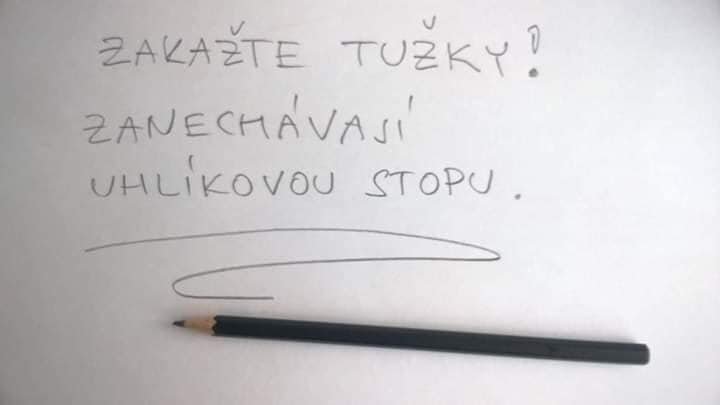 ZAKAŽTE TUŽKY!
ZANECHÁVAJÍ
UHLÍKOVOU STOPU.